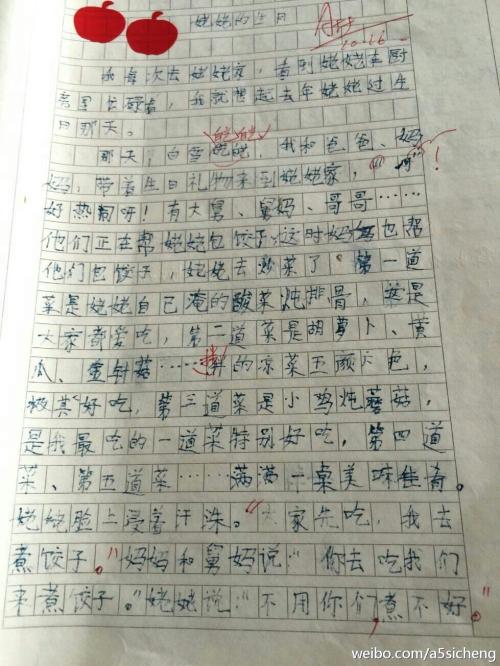 姥姥的生日
A++
10.16
我每次去姥姥家，看到姥姥在厨
房里忙碌着，我就想起去年姥姥过生
日那天。
皑皑
那天，白雪皑皑，我和爸爸、妈
妈，带着生日礼物来到姥姥家，“啊”！
好热闹呀！有大舅、舅妈、哥哥……
他们正在帮姥姥包饺子，这时妈妈也帮
他们包饺子，姥姥去炒菜了。第一道
菜是姥姥自己淹的酸菜炖排骨，这是
大家都爱吃，第二道菜是胡萝卜、黄
瓜、金针菇……拌的凉菜五颜六色，
极其好吃，第三道菜是小鸡炖蘑菇，
是我最吃的一道菜特别好吃，第四道
菜、第五道菜……满满一桌美味佳肴。
姥姥脸上浸着汗珠。“大家先吃，我去
煮饺子。”妈妈和舅妈说“你去吃我们
来煮饺子。”姥姥说：“不用你们，煮不好。”
weibo.com/a5sicheng